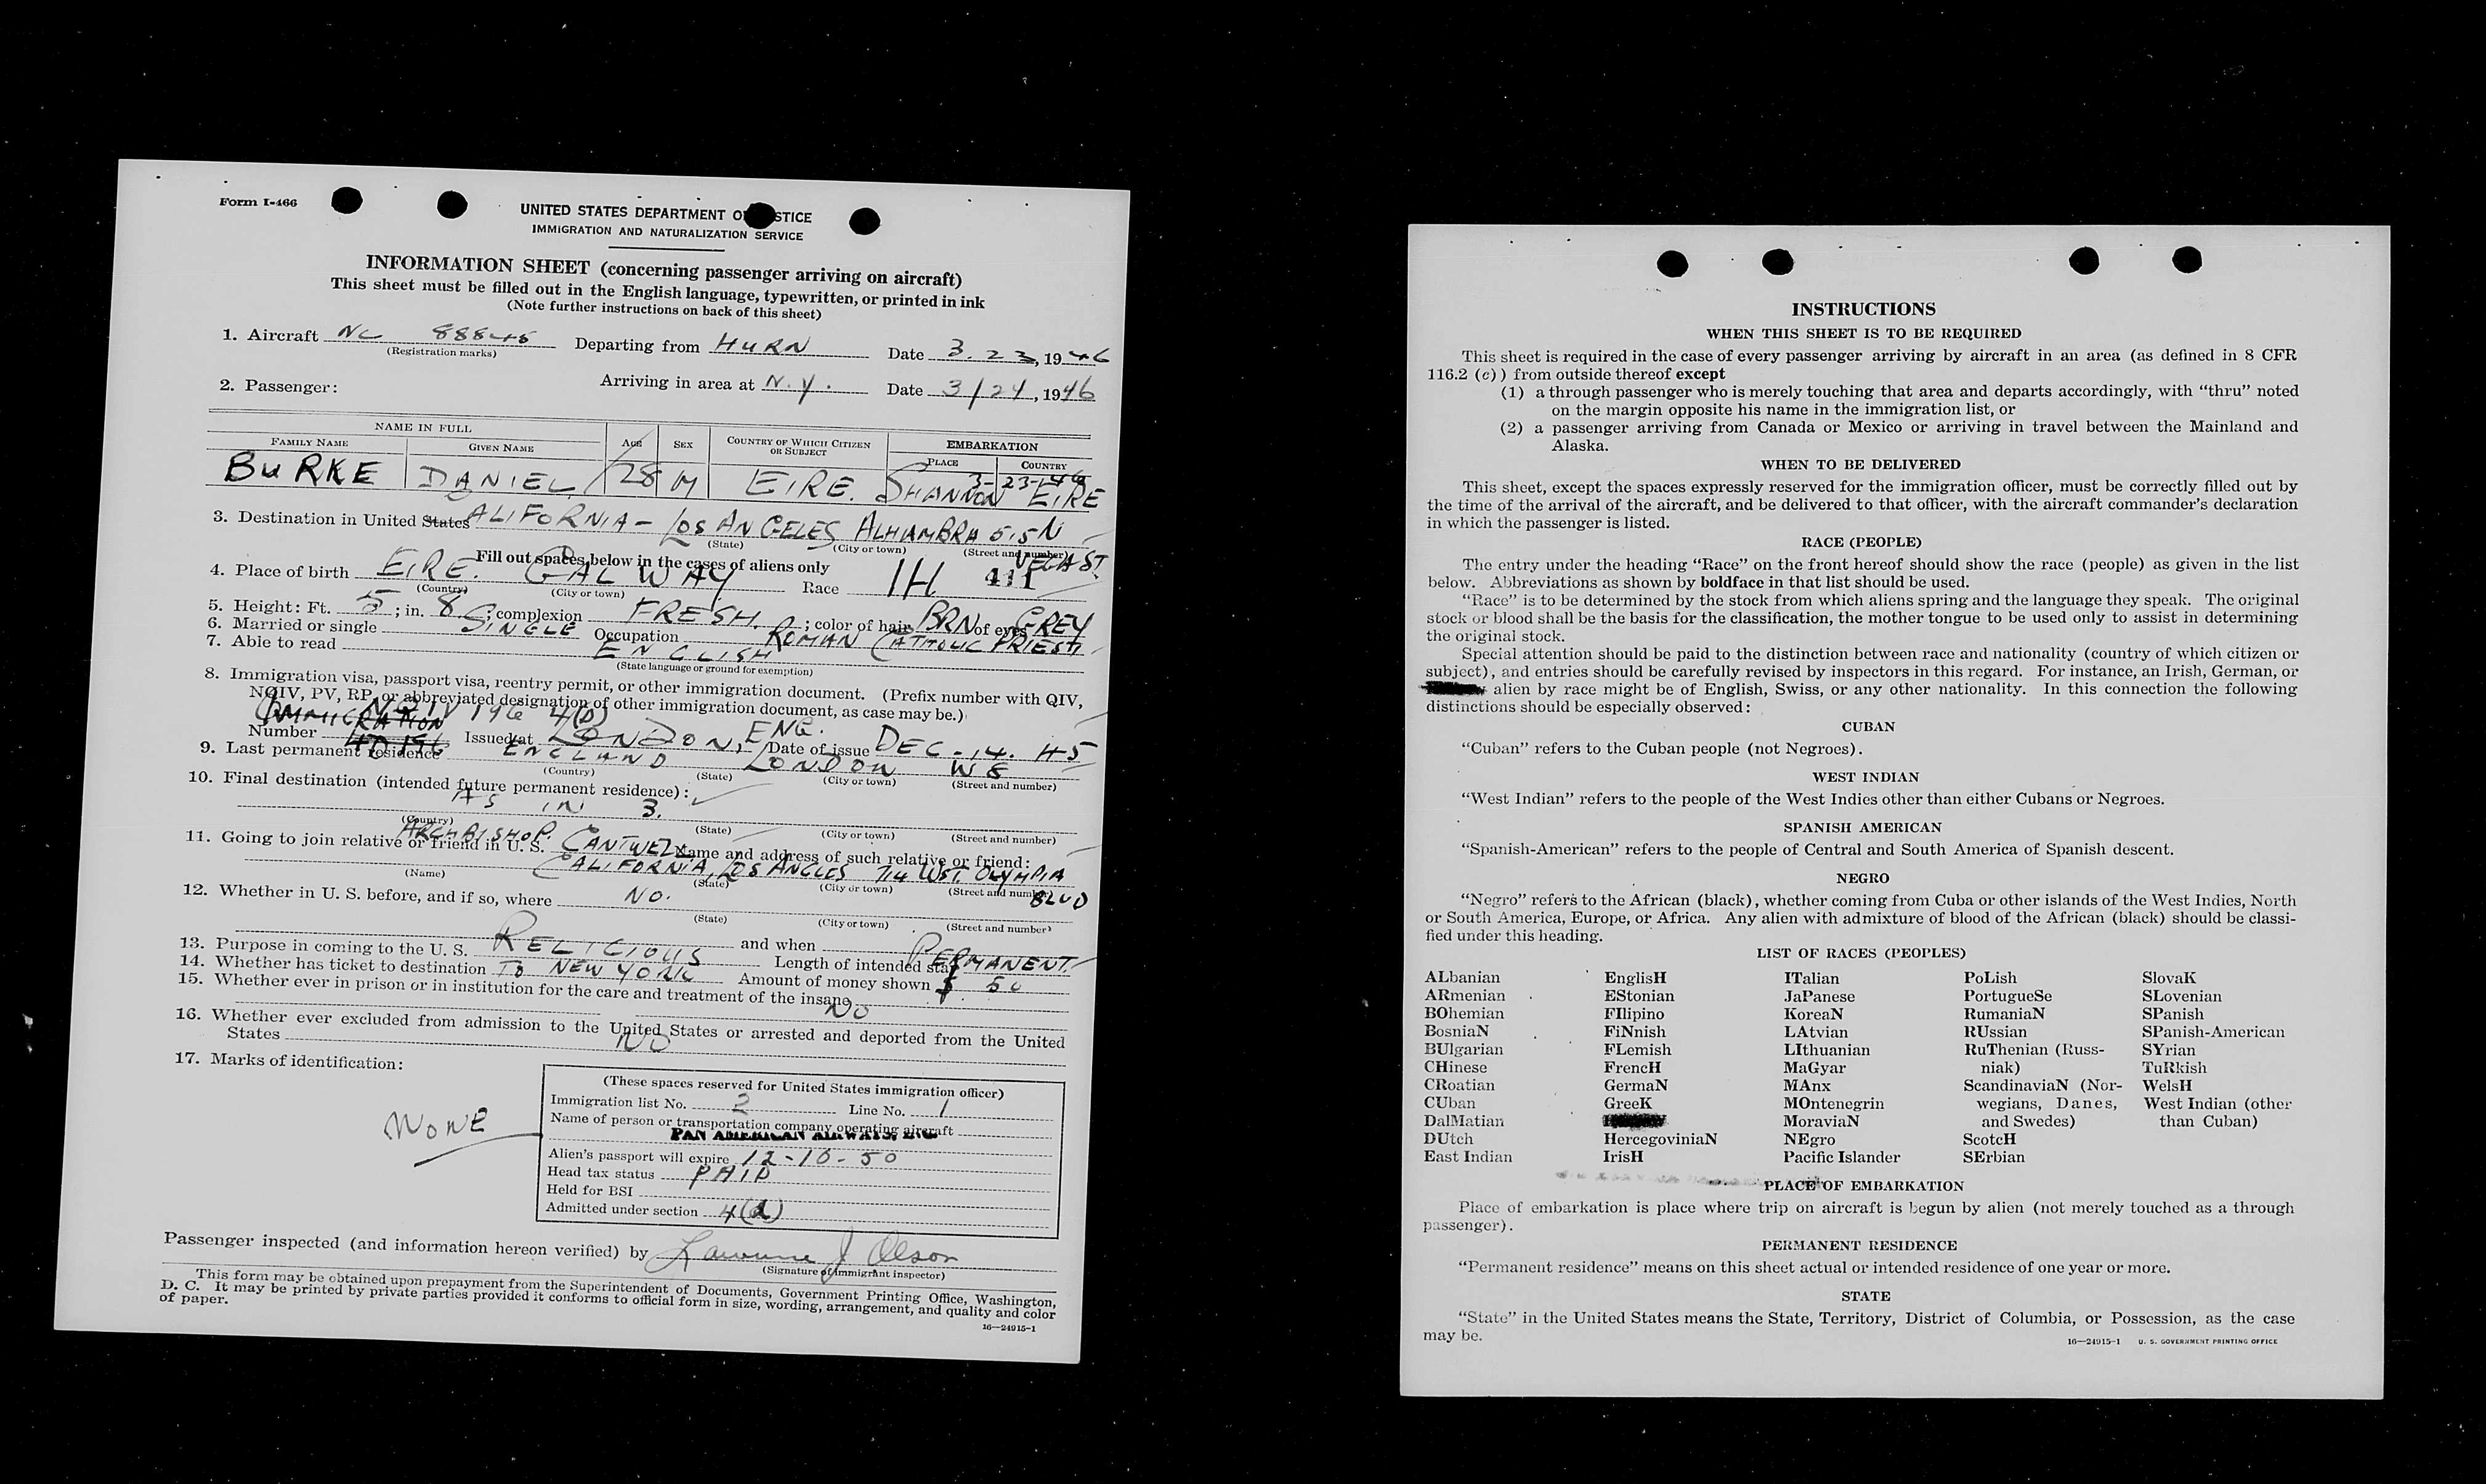 Form I-466
UNITED STATES DEPARTMENT OF JUSTICE
IMMIGRATION AND NATURALIZATION SERVICE
INFORMATION SHEET (concerning passenger arriving on aircraft)
This sheet must be filled out in the English language, typewritten, or printed in ink
(Note further instructions on back of this sheet)
1. Aircraft NC 88845 Departing from HURN Date 3.23, 1946
(Registration marks)
2. Passenger: Arriving in area at N.Y. Date 3/24, 1946
NAME IN FULL
FAMILY NAME GIVEN NAME AGE SEX COUNTRY OF WHICH CITIZEN OR SUBJECT EMBARKATION
PLACE COUNTRY
3-23-46
BURKE DANIEL 28 M EIRE. SHANNON EIRE
3. Destination in United States CALIFORNIA - LOS ANGELES ALHAMBRA 5.5 N
(State) (City or town) (Street and number) VEGA ST.
Fill out spaces below in the cases of aliens only
4. Place of birth EIRE. GALWAY Race IH 411
(Country) (City or town)
5. Height: Ft. 5; in. 8; complexion FRESH; color of hair BRN of eyes GREY
6. Married or single SINGLE Occupation ROMAN CATHOLIC PRIEST
7. Able to read ENGLISH
(State language or ground for exemption)
8. Immigration visa, passport visa, reentry permit, or other immigration document. (Prefix number with QIV,
NQIV, PV, RP, or abbreviated designation of other immigration document, as case may be.)
IMMIGRATION NQIV 196 4(D)
Number 4D 196 Issued at LONDON, ENG. Date of issue DEC-14. 45
9. Last permanent residence ENGLAND LONDON W 8
(Country) (State) (City or town) (Street and number)
10. Final destination (intended future permanent residence):
AS IN 3.
(Country) (State) (City or town) (Street and number)
11. Going to join relative or friend in U. S. ARCHBISHOP. CANTWELL Name and address of such relative or friend:
CALIFORNIA, LOS ANGLES 714 WST. OLYMPIA
(Name) (State) (City or town) (Street and number) BLVD
12. Whether in U. S. before, and if so, where NO.
(State) (City or town) (Street and number)
and when
13. Purpose in coming to the U. S. RELIGIOUS Length of intended stay PERMANENT.
14. Whether has ticket to destination TO NEW YORK Amount of money shown $ 50
15. Whether ever in prison or in institution for the care and treatment of the insane
NO
16. Whether ever excluded from admission to the United States or arrested and deported from the United
States NO
17. Marks of identification:
NONE
(These spaces reserved for United States immigration officer)
Immigration list No. 2 Line No. 1
Name of person or transportation company operating aircraft
PAN AMERICAN AIRWAYS, INC.
Alien's passport will expire 12-10-50
Head tax status PAID
Held for BSI
Admitted under section 4(d)
Passenger inspected (and information hereon verified) by Lawrence J Olson
(Signature of immigrant inspector)
This form may be obtained upon prepayment from the Superintendent of Documents, Government Printing Office, Washington,
D. C. It may be printed by private parties provided it conforms to official form in size, wording, arrangement, and quality and color
of paper.
16—24915-1
INSTRUCTIONS
WHEN THIS SHEET IS TO BE REQUIRED
This sheet is required in the case of every passenger arriving by aircraft in an area (as defined in 8 CFR
116.2 (c)) from outside thereof except
(1) a through passenger who is merely touching that area and departs accordingly, with "thru" noted
on the margin opposite his name in the immigration list, or
(2) a passenger arriving from Canada or Mexico or arriving in travel between the Mainland and
Alaska.
WHEN TO BE DELIVERED
This sheet, except the spaces expressly reserved for the immigration officer, must be correctly filled out by
the time of the arrival of the aircraft, and be delivered to that officer, with the aircraft commander's declaration
in which the passenger is listed.
RACE (PEOPLE)
The entry under the heading "Race" on the front hereof should show the race (people) as given in the list
below. Abbreviations as shown by boldface in that list should be used.
"Race" is to be determined by the stock from which aliens spring and the language they speak. The original
stock or blood shall be the basis for the classification, the mother tongue to be used only to assist in determining
the original stock.
Special attention should be paid to the distinction between race and nationality (country of which citizen or
subject), and entries should be carefully revised by inspectors in this regard. For instance, an Irish, German, or
alien by race might be of English, Swiss, or any other nationality. In this connection the following
distinctions should be especially observed:
CUBAN
"Cuban" refers to the Cuban people (not Negroes).
WEST INDIAN
"West Indian" refers to the people of the West Indies other than either Cubans or Negroes.
SPANISH AMERICAN
"Spanish-American" refers to the people of Central and South America of Spanish descent.
NEGRO
"Negro" refers to the African (black), whether coming from Cuba or other islands of the West Indies, North
or South America, Europe, or Africa. Any alien with admixture of blood of the African (black) should be classi-
fied under this heading.
LIST OF RACES (PEOPLES)
ALbanian EnglisH ITalian PoLish SlovaK
ARmenian EStonian JaPanese PortugueSe SLovenian
BOhemian FIlipino KoreaN RumaniaN SPanish
BosniaN FiNnish LAtvian RUssian SPanish-American
BUlgarian FLemish LIthuanian RuThenian (Russ- SYrian
CHinese FrencH MaGyar niak) TuRkish
CRoatian GermaN MAnx ScandinaviaN (Nor- WelsH
CUban GreeK MOntenegrin wegians, Danes, West Indian (other
DalMatian MoraviaN and Swedes) than Cuban)
DUtch HercegoviniaN NEgro ScotcH
East Indian IrisH Pacific Islander SErbian
PLACE OF EMBARKATION
Place of embarkation is place where trip on aircraft is begun by alien (not merely touched as a through
passenger).
PERMANENT RESIDENCE
"Permanent residence" means on this sheet actual or intended residence of one year or more.
STATE
"State" in the United States means the State, Territory, District of Columbia, or Possession, as the case
may be.
16—24915-1 U. S. GOVERNMENT PRINTING OFFICE